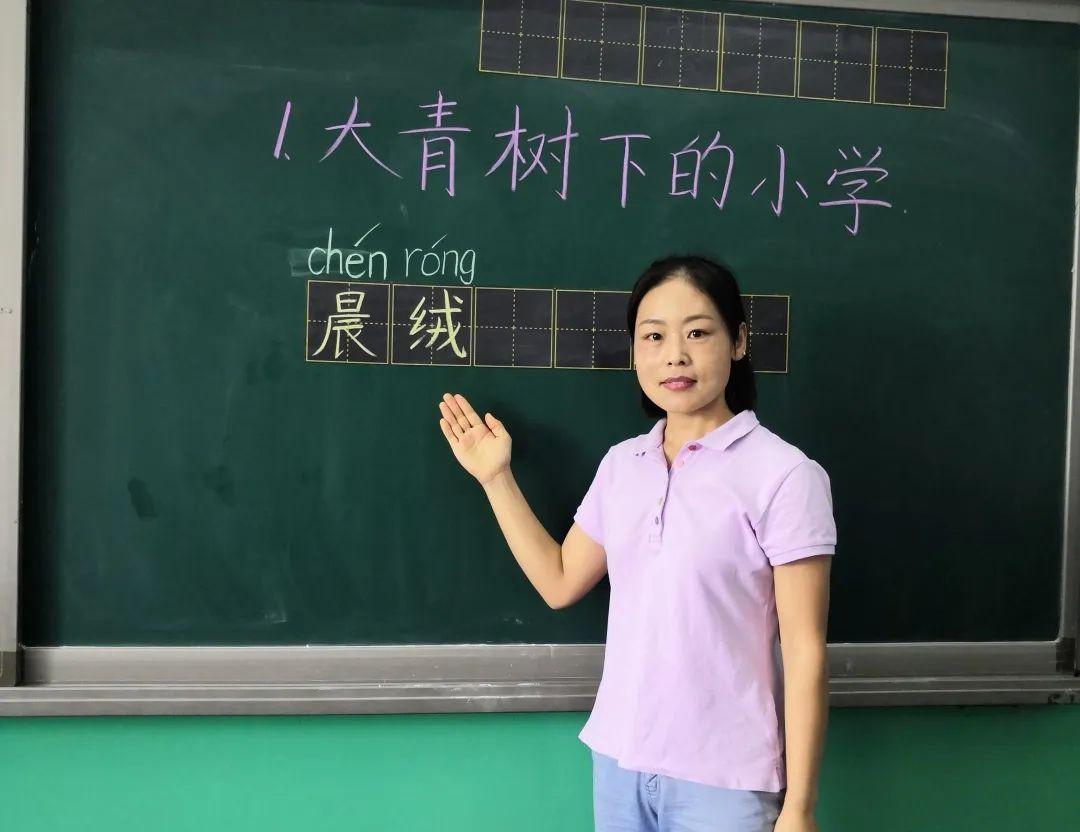 1.大青树下的小学
chén róng
晨绒